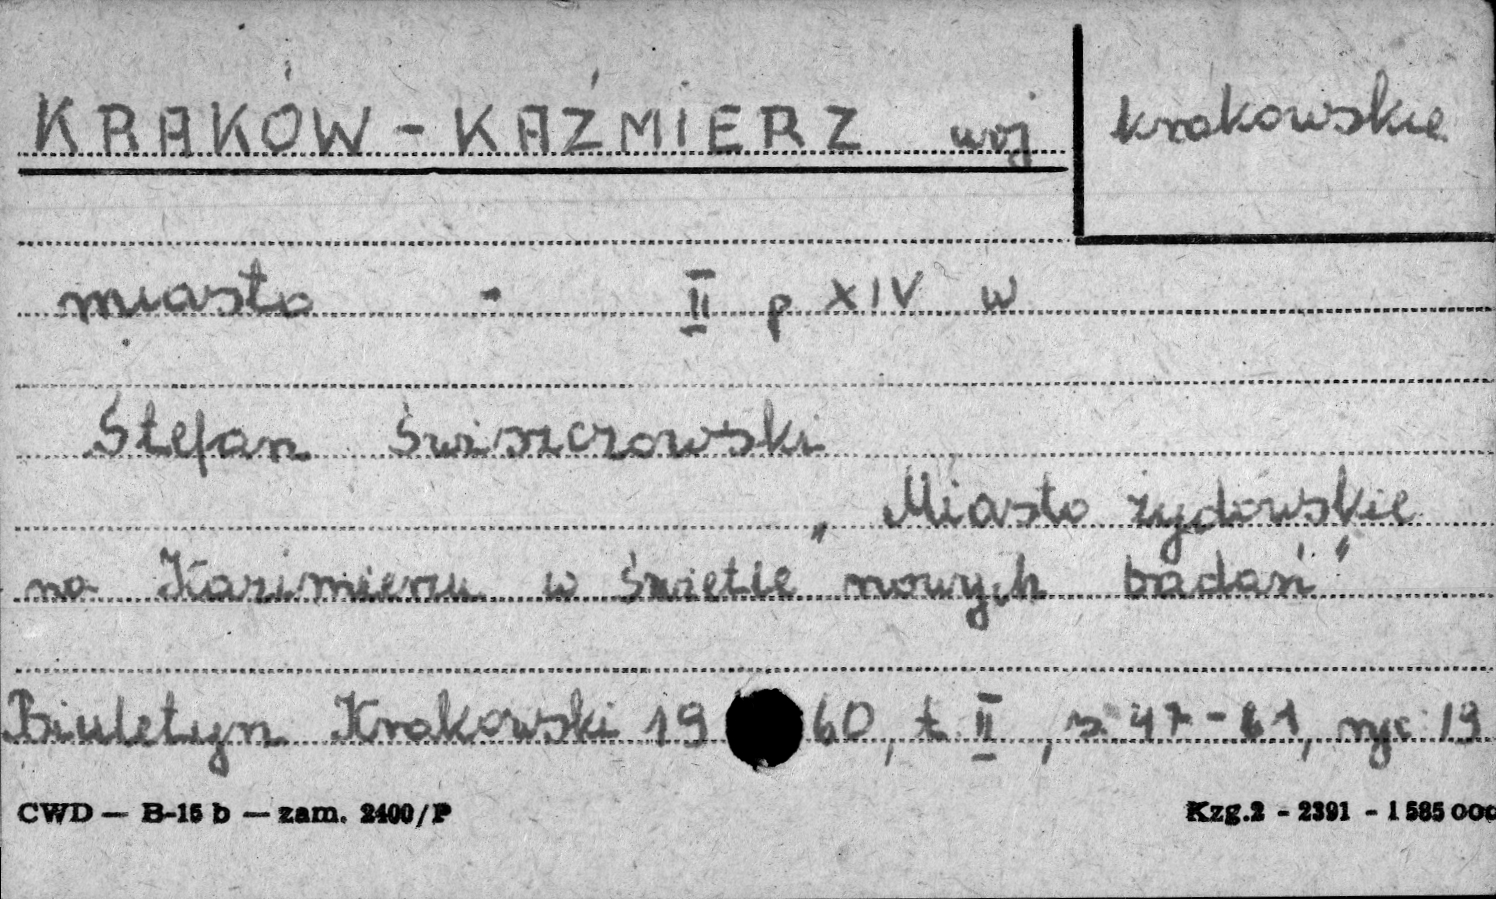 KRAKÓW - KAŹMIERZ woj krakowskie
miasto - II p XIV w
Stefan Świszczowski
„Miasto żydowskie
na Kazimierzu w świetle nowych badań"
Biuletyn Krakowski 1960, t II, s. 47-61, ryc 19
CWD — B-15 b — zam. 2400/P
Kzg.2 - 2391 - 1 585 000